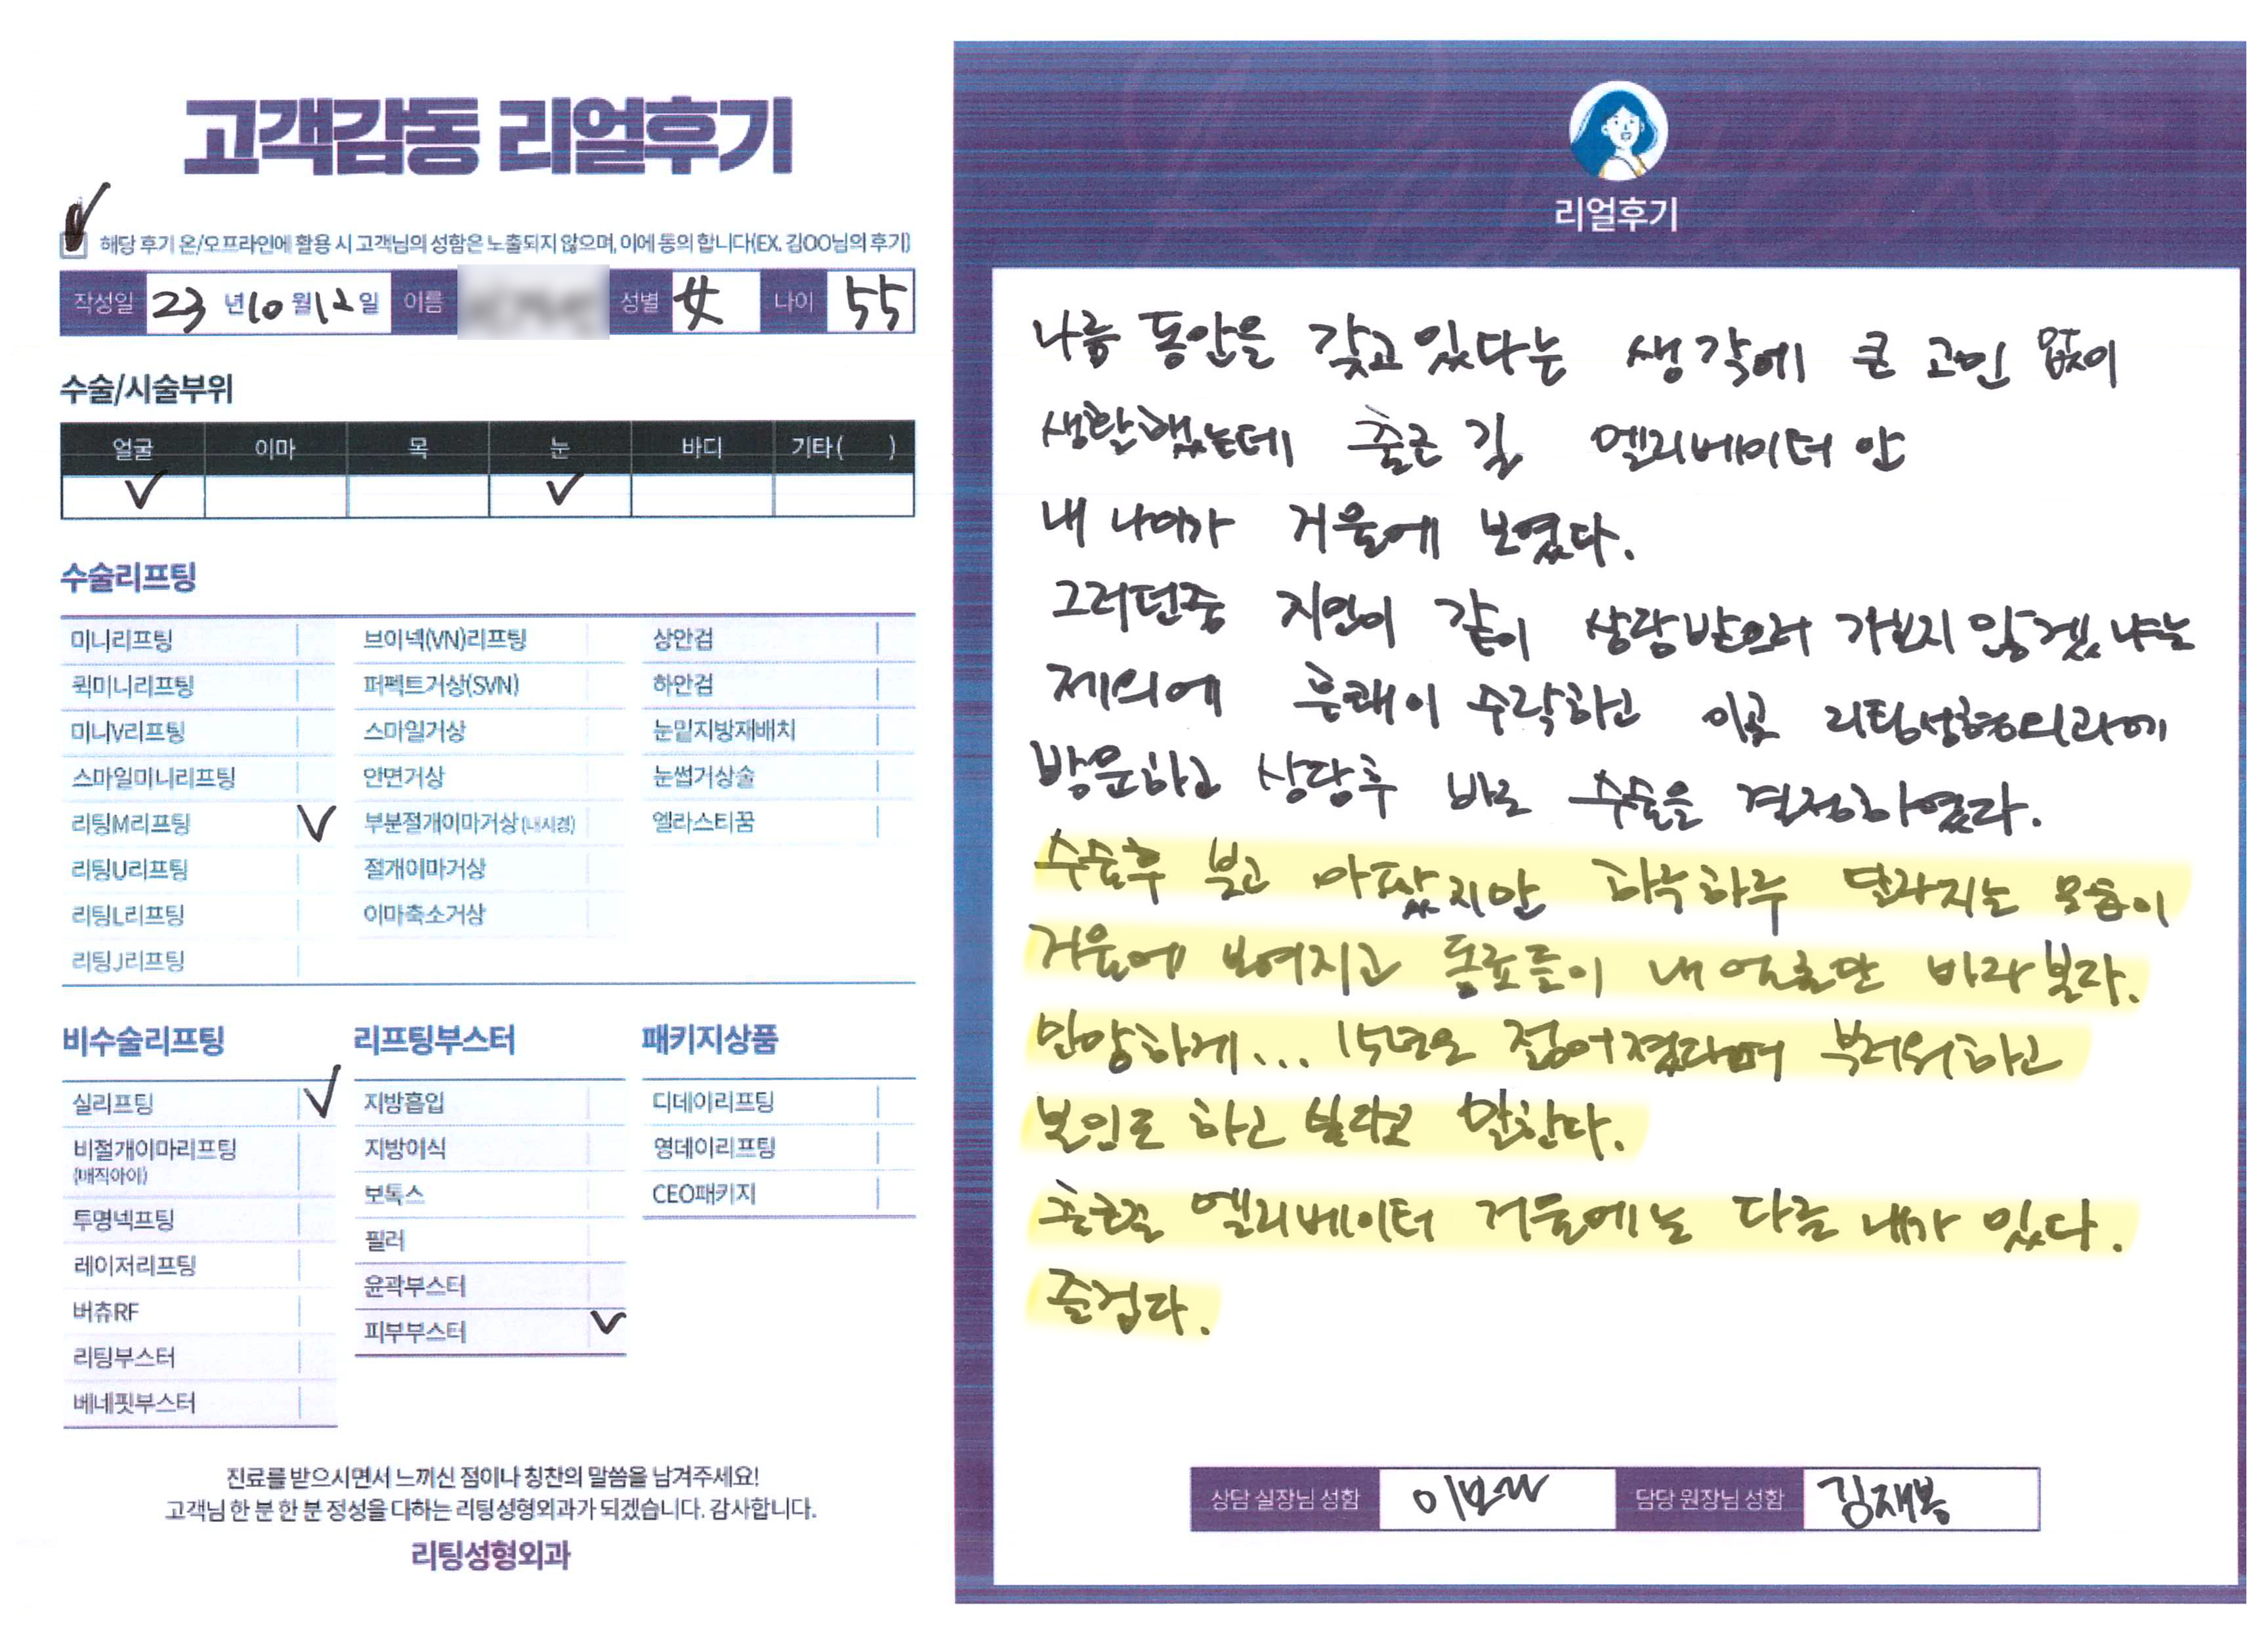 고객감동 리얼후기
해당 후기 온/오프라인에 활용 시 고객님의 성함은 노출되지 않으며, 이에 동의 합니다(EX. 김OO님의 후기)
작성일 23 년 10 월 12 일 이름 성별 女 나이 55
수술/시술부위
얼굴 이마 목 눈 바디 기타( )
✓ ✓
수술리프팅
미니리프팅 브이넥(VN)리프팅 상안검
퀵미니리프팅 퍼펙트거상(SVN) 하안검
미니V리프팅 스마일거상 눈밑지방재배치
스마일미니리프팅 안면거상 눈썹거상술
리팅M리프팅 ✓ 부분절개이마거상(내시경) 엘라스티꿈
리팅U리프팅 절개이마거상
리팅L리프팅 이마축소거상
리팅J리프팅
비수술리프팅 리프팅부스터 패키지상품
실리프팅 ✓ 지방흡입 디데이리프팅
비절개이마리프팅 지방이식 영데이리프팅
(매직아이) 보톡스 CEO패키지
투명넥프팅 필러
레이저리프팅 윤곽부스터
버츄RF 피부부스터 ✓
리팅부스터
베네핏부스터
진료를 받으시면서 느끼신 점이나 칭찬의 말씀을 남겨주세요!
고객님 한 분 한 분 정성을 다하는 리팅성형외과가 되겠습니다. 감사합니다.
리팅성형외과
리얼후기
나름 동안을 갖고 있다는 생각에 큰 고민 없이
생활했는데 출근 길 엘리베이터 안
내 나이가 거울에 보였다.
그러던중 지인이 같이 상담받으러 가보지 않겠냐는
제의에 흔쾌이 수락하고 이곳 리팅성형외과에
방문하고 상담후 바로 수술을 결정하였다.
수술후 붓고 아팠지만 하루하루 달라지는 모습이
거울에 보여지고 동료들이 내 얼굴만 바라본다.
민망하게... 15년은 젊어졌다며 부러워하고
본인도 하고 싶다고 말한다.
출근길 엘리베이터 거울에는 다른 내가 있다.
즐겁다.
상담 실장님 성함 이보나 담당 원장님 성함 김재봉